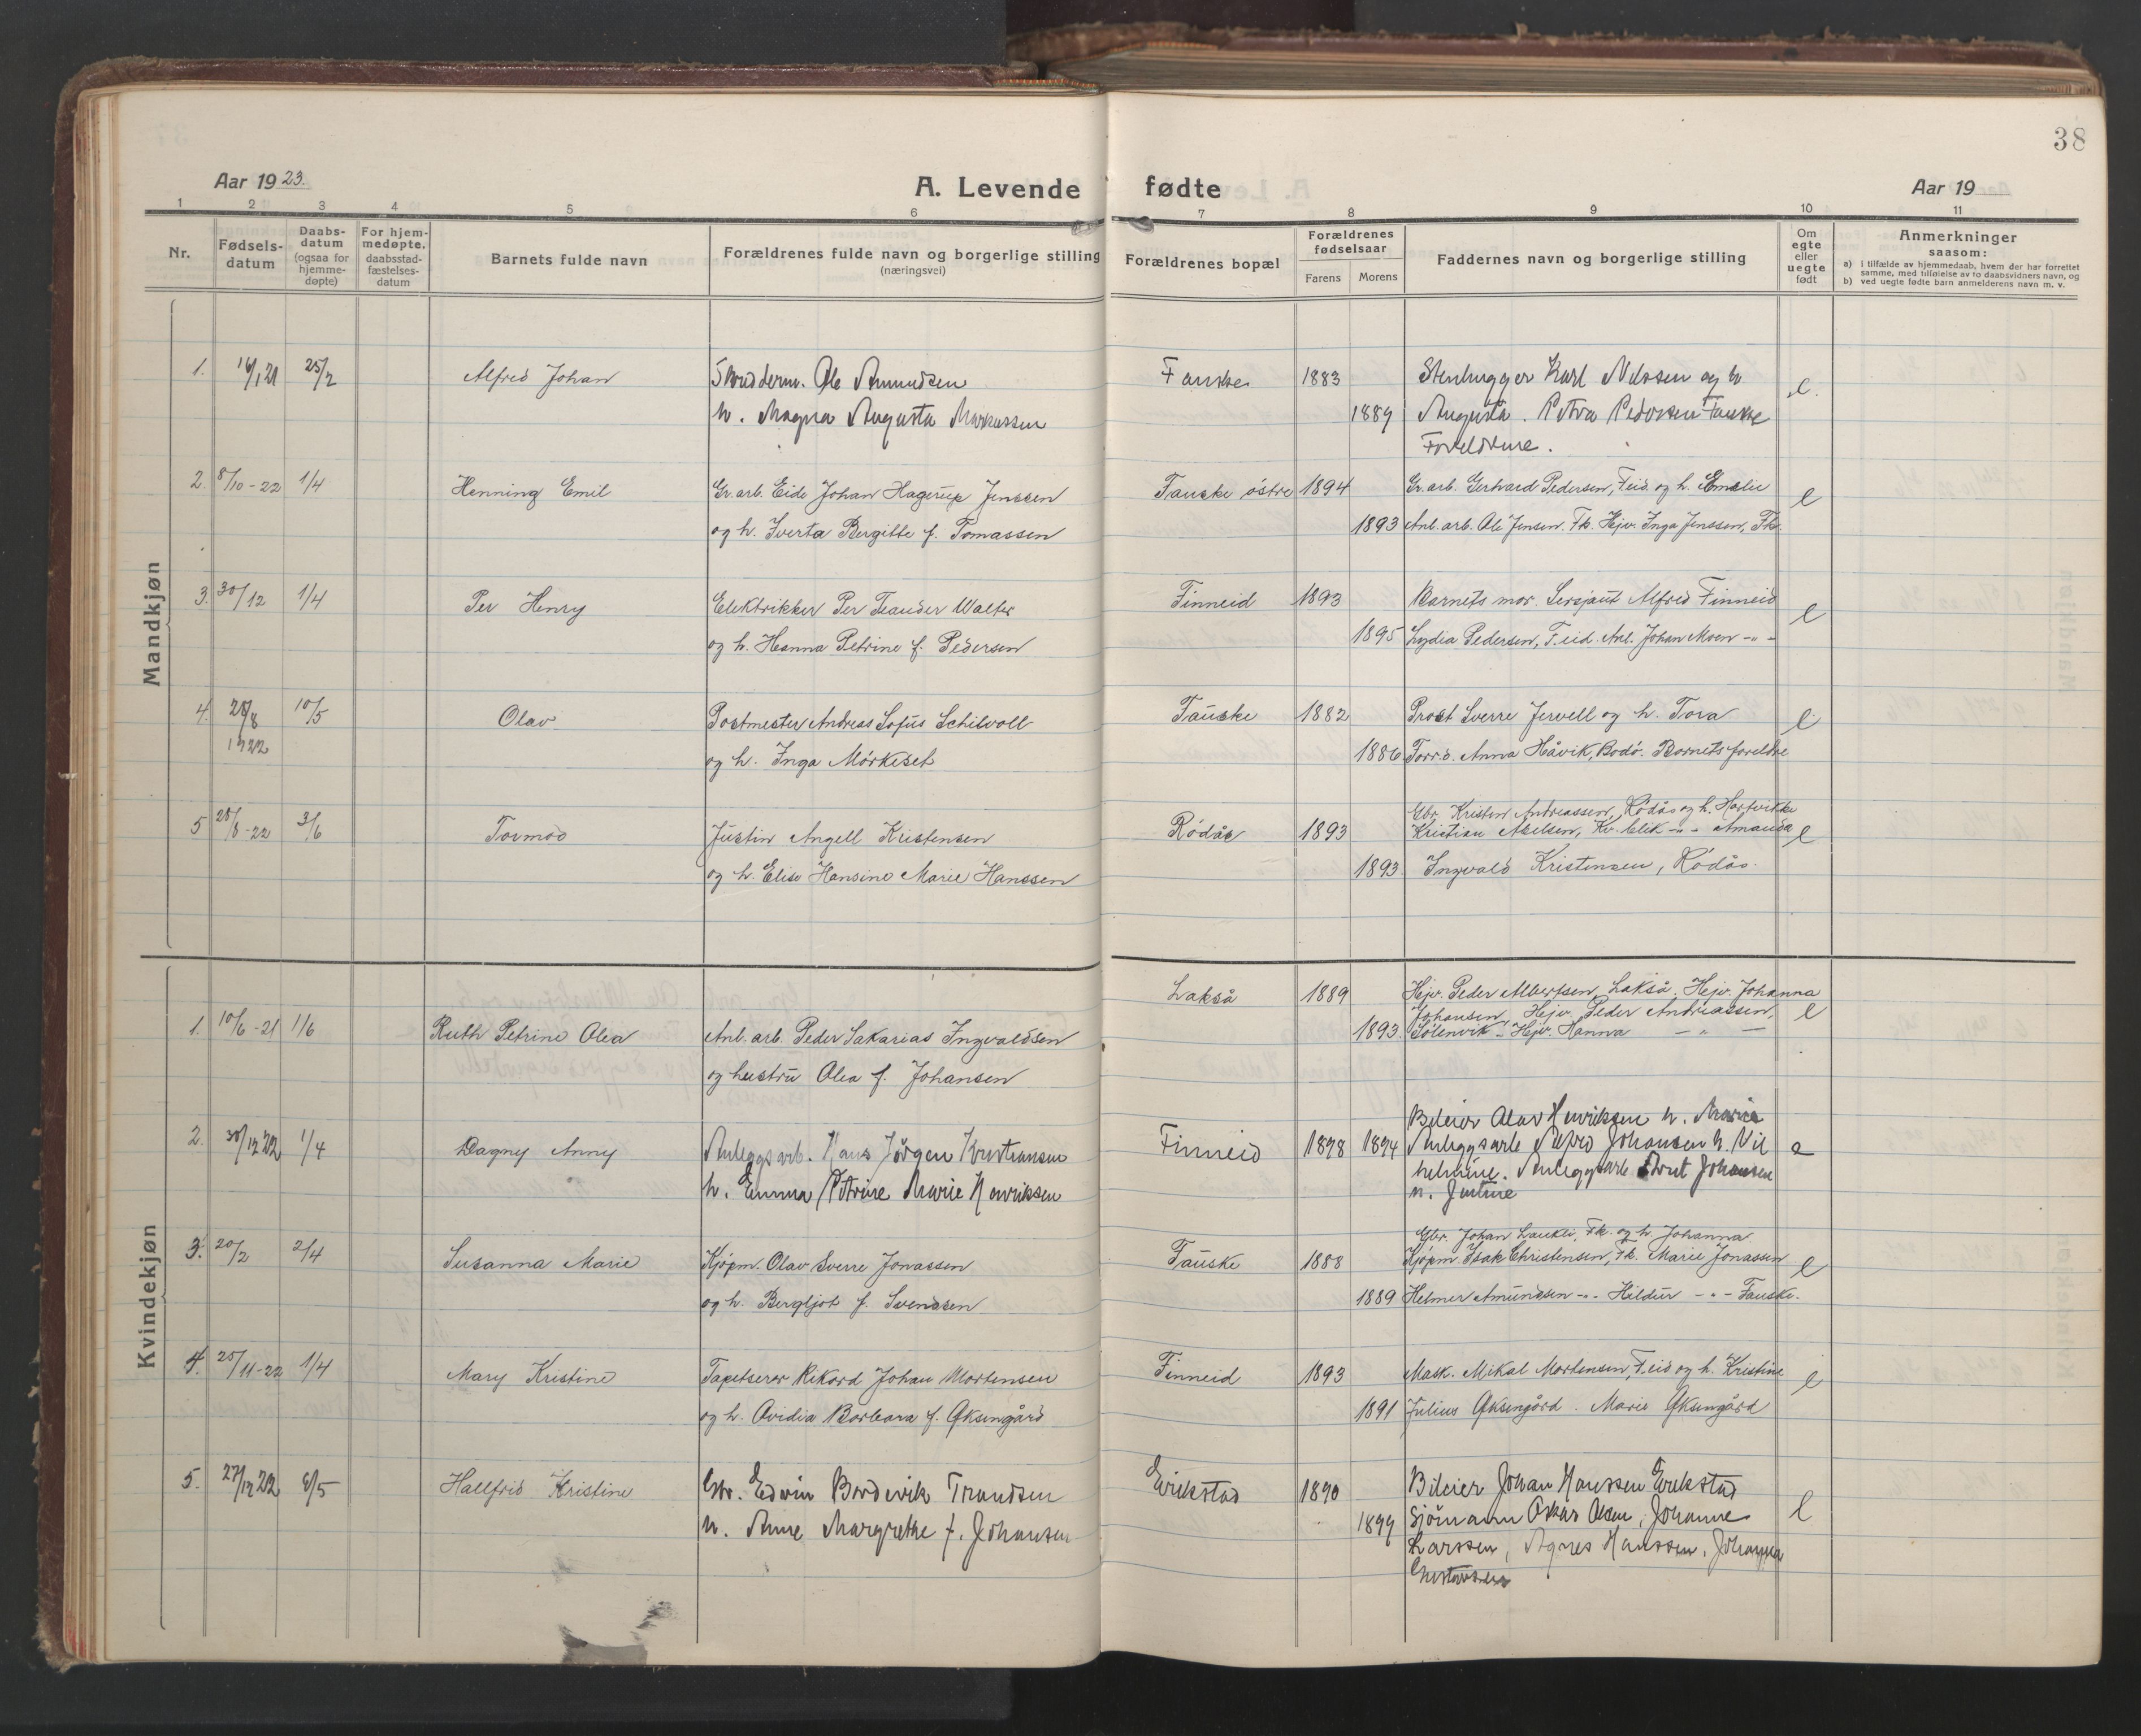 38
Aar 1923.
A. Levende fødte
Aar 19
1 2 3 4 5 6 7 8 9 10 11
Nr.
Fødsels-
datum
Daabs-
datum
(ogsaa for
hjemme-
døpte)
For hjem-
medøpte.
daabsstad-
fæstelses-
datum
Barnets fulde navn
Forældrenes fulde navn og borgerlige stilling
(næringsvei)
Forældrenes bopæl
Forældrenes
fødselsaar
Farens Morens
Faddernes navn og borgerlige stilling
Om
egte
eller
uegte
født
Anmerkninger
saasom:
a) i tilfælde av hjemmedaab, hvem der har forrettet
samme, med tilføielse av to daabsvidners navn, og
b) ved uegte fødte barn anmelderens navn m. v.
Mandkjøn
1. 25/2 Alfred Johan Skredderm. Ole Amundsen Fauske 1883 Stenhugger Karl Nilssen og h. e.
h. Magna Augusta Markussen 1889 Augusta. Petra Pedersen Fauske
Foreldrene.
2. 8/10-22 1/4 Henning Emil Gr.arb. Eide Johan Hagerup Jenssen Fauske østre 1894 Gr.arb. Gerhard Pedersen, F.eid. og h. Emelie e
og h. Iverta Bergitte f. Tomassen 1893 Anl. arb. Ole Jensen. Fk. Hejv. Inga Jenssen, Fk.
3. 30/12 1/4 Per Henry Elektrikker Per Teander Walter Finneid 1893 Barnets mor. Sersjant Alfred Finneid e
og h. Hanna Petrine f. Pedersen 1895 Lydia Pedersen, F.eid. Anl. Johan Moen -"-
4. 28/8 10/5 Olav Postmester Andreas Sofus Schilvoll Fauske 1882 Prost Sverre Jervell og h. Tora e
1922 og h. Inga Mørkeset 1886 Anna Håvik, Bodø. Barnets foreldre
5 28/8-22 3/6 Tormod Justin Angell Kristensen Rødås 1893 Gbr. Kristen Andreassen, Rødås og h.
Kristian Axelsen, -"- Amanda e
og h. Elise Hansine Marie Hanssen 1893 Ingvald Kristensen, Rødås.
Kvindekjøn
1. 10/6-21 1/6 Ruth Petrine Olea Anl. arb. Peder Sakarias Ingvaldsen Lakså 1889 Hejv. Peder Albertsen, Lakså. Hejv. Johanna
Johansen, Hejv. Peder Andreassen, e
og hustru Olea f. Johansen 1893 Sølenvik. Hejv. Hanna -"-
2. 30/12 22 1/4 Dagny Anny Anleggsarb. Hans Jørgen Kristiansen Finneid 1898 1894 Bileier Olav Henriksen h. Marie
Anleggsarb Alfred Johansen h. Vil e
h. Emma Petrine Marie Henriksen helmine. Anleggsarb Johansen
h. Justine
3. 20/2 2/4 Susanna Marie Kjøpm. Olav Sverre Jonassen Fauske 1888 Gbr. Johan Laukli, Fk. og h. Johanna.
Kjøpm. Isak Christensen, Fk. Marie Jonassen e
og h. Bergljot f. Svendsen 1889 Helmer Amundsen -"- Hildur -"- Fauske.
4. 25/11-22 1/4 Mary Kristine Tapetserer Rikard Johan Mortensen Finneid 1893 Mask. Mikal Mortensen, F.eid og h. Kristine e
og h. Ovidia Barbara f. Øksengård 1891 Julius Øksengård. Marie Øksengård
5. 27/12 22 6/5 Hallfrid Kristine Gbr. Edvin Bordevik Trondsen Erikstad 1890 Bileier Johan Hanssen Erikstad
h. Anne Margrethe f. Johansen 1899 Sjømann Oskar Olsen, Johanne e
Larssen, Agnes Hanssen, Johanna
Gustavsen